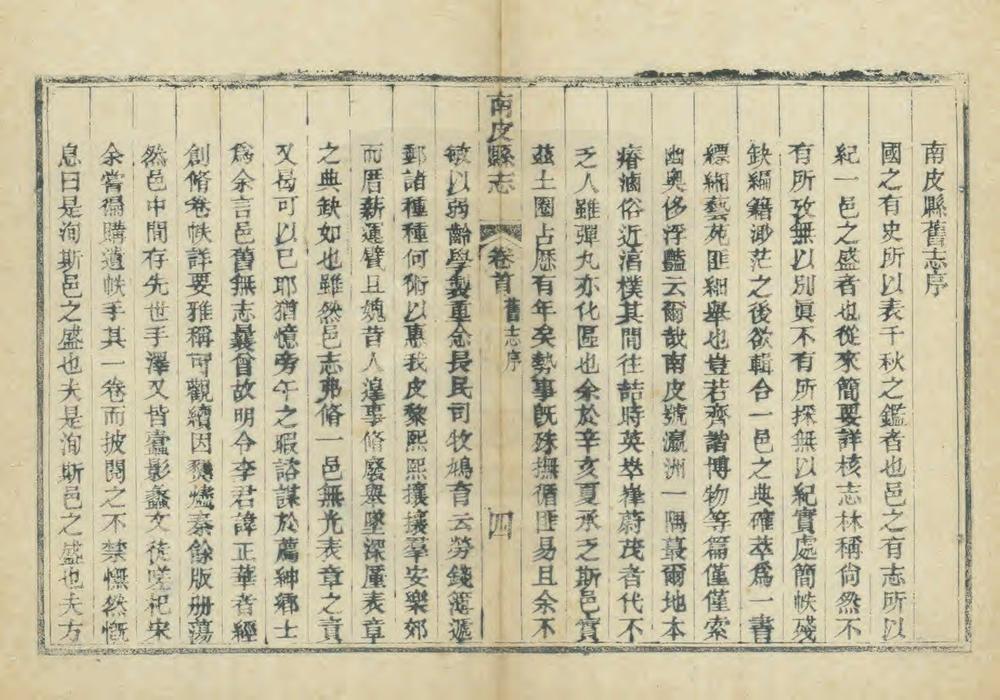 南皮縣舊志序
國之有史所以表千秋之鑑者也邑之有志所以
紀一邑之盛者也從來簡要詳核志林稱尙然不
有所攷無以別眞不有所採無以紀實處簡帙殘
缺編籍渺茫之後欲輯合一邑之典確萃爲一書
縹緗藝苑匪細舉也豈若齊諧博物等篇僅僅索
幽奥侈浮豔云爾哉南皮號瀛洲一隅蕞爾地本
瘠滷俗近湻樸其間往喆時英萃嶐蔚茂者代不
乏人雖彈丸亦化區也余於辛亥夏承乏斯邑實
茲土圈占歴有年矣勢事旣殊撫循匪易且余不
南皮縣志 卷首 舊志序 四
敏以弱齡學製重念長民司牧鳩育云勞錢簿遞
郵諸種種何術以惠我皮黎熙熙攘攘羣安樂郊
而厝薪運臂且媿昔人遑事脩廢與墜深厪表章
之典缺如也雖然邑志弗脩一邑無光表章之責
又曷可以已耶猶憶旁午之暇諮諆於薦紳鄉士
爲余言邑舊無志曩曾故明令李君諱正華者經
創脩卷帙詳要雅稱可觀續因燹爐秦餘版册蕩
然邑中間存先世手澤又皆蠹影蠡文徒嗟祀宋
余嘗徧購遺帙手其一卷而披閱之不禁憮然慨
息曰是洵斯邑之盛也夫是洵斯邑之盛也夫方